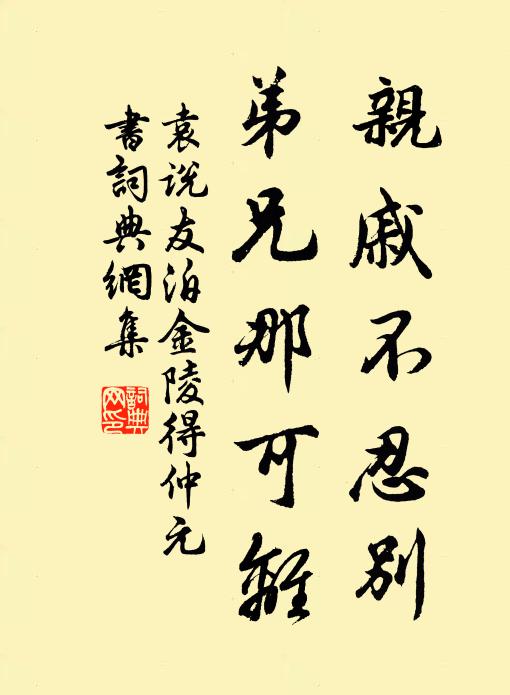 親戚不忍別
弟兄那可離
袁説友泊金陵得仲元
書詞典網集
詞典
网印